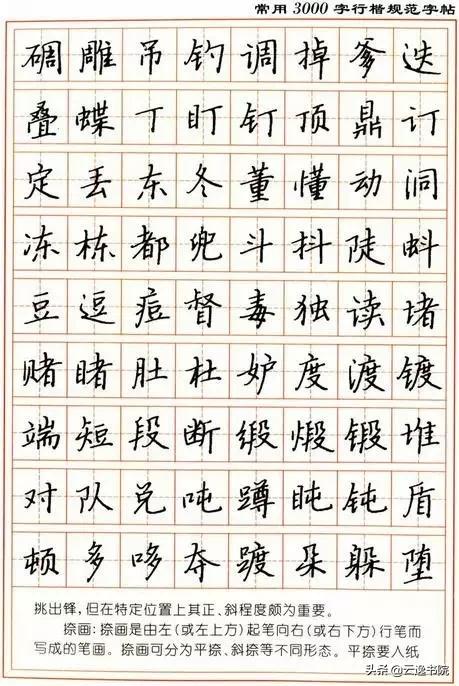 常用3000字行楷规范字帖
碉雕吊钓调掉爹迭
叠蝶丁盯钉顶鼎订
定丢东冬董懂动洞
冻栋都兜斗抖陡蚪
豆逗痘督毒独读堵
赌睹肚杜妒度渡镀
端短段断缎煅锻堆
对队兑吨蹲盹钝盾
顿多哆夺踱朵躲堕
挑出锋,但在特定位置上其正、斜程度颇为重要。
捺画:捺画是由左(或左上方)起笔向右(或右下方)行笔而
写成的笔画。捺画可分为平捺、斜捺等不同形态。平捺要入纸
头条@云逸书院